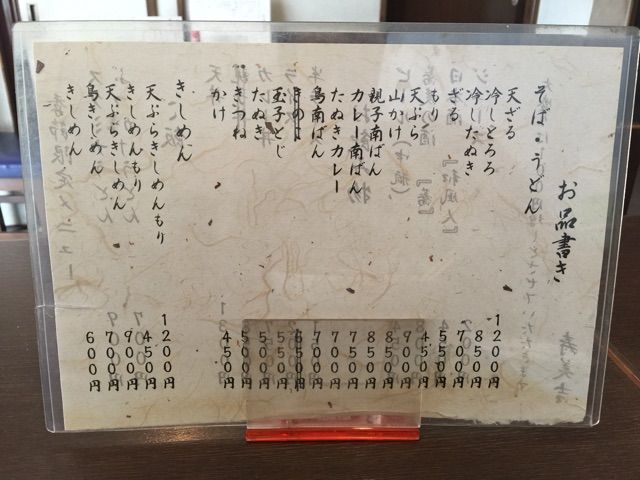 お品書き
そば・うどん
天ざる 1200円
冷しとろろ 850円
冷したぬき 700円
ざる 550円
もり 450円
天ぷら
山かけ
親子南ばん 850円
カレー南ばん 750円
たぬきカレー
鳥南ばん 700円
きのこ 650円
玉子とじ 550円
たぬき 500円
きつね 500円
かけ 450円
きしめん
天ぷらきしめんもり 1200円
きしめんもり 450円
天ぷらきしめん 900円
鳥きしめん 700円
きしめん 600円